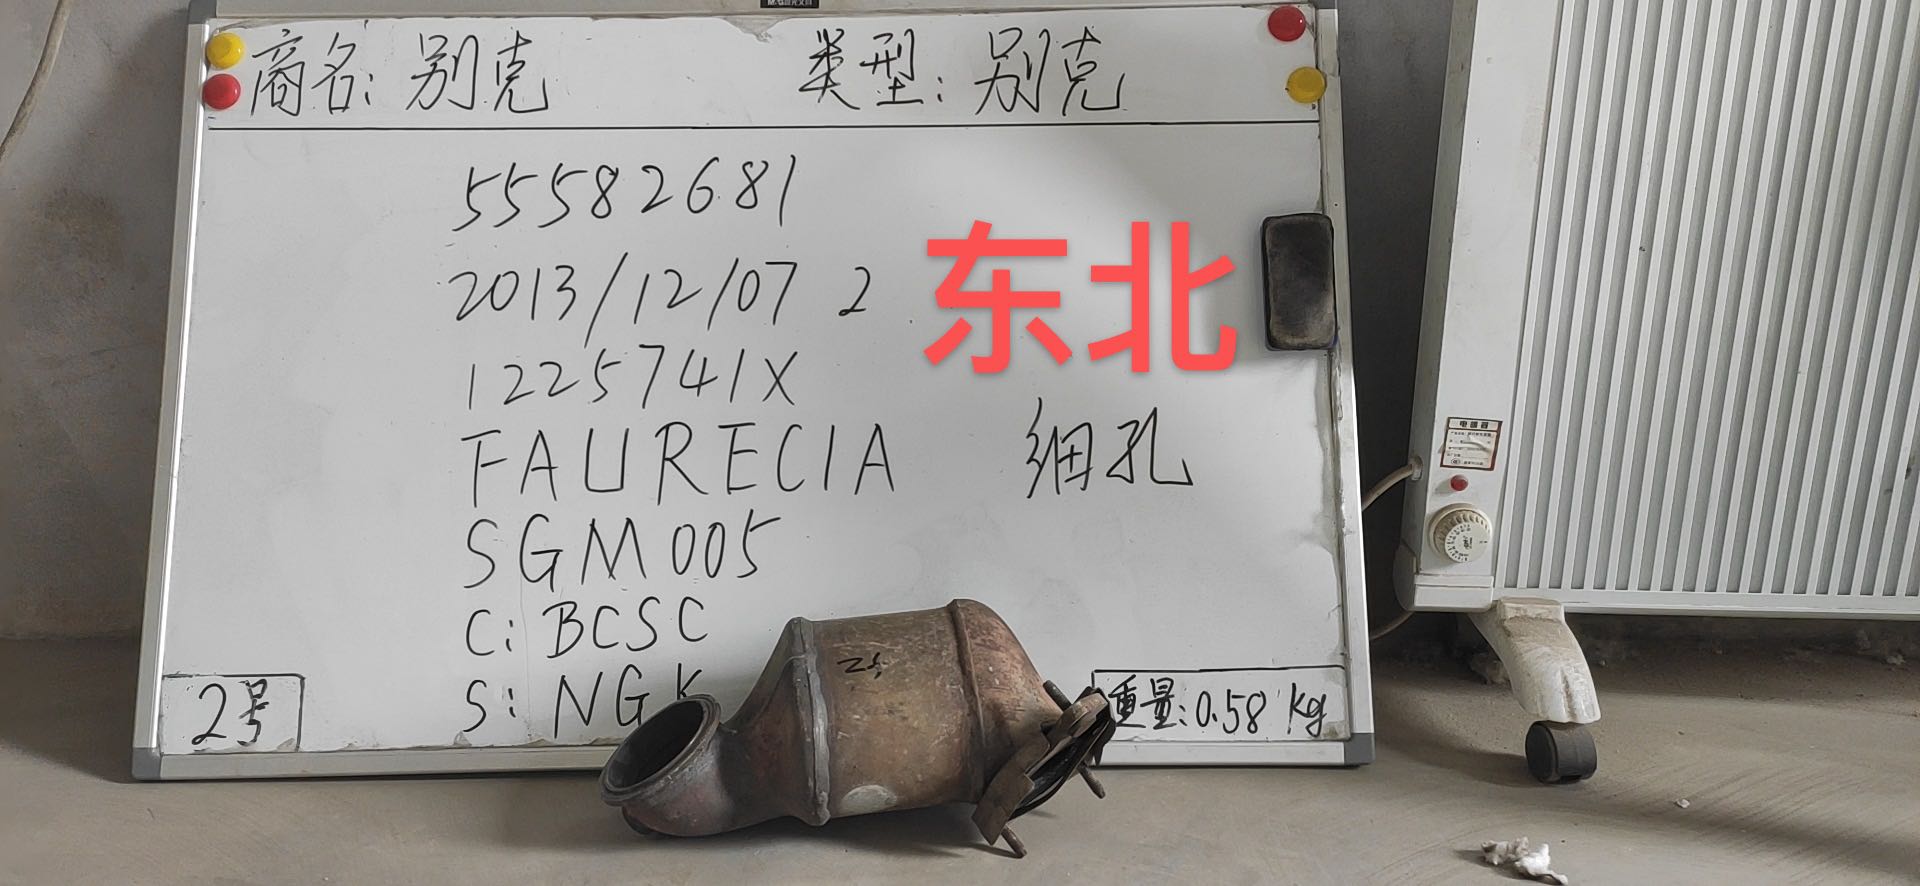 商名: 别克 类型: 别克
55582681
2013/12/07 2
东北
1225741X
FAURECIA 细孔
SGM005
C: BCSC
S: NGK
2号
重量: 0.58 Kg
电暖器